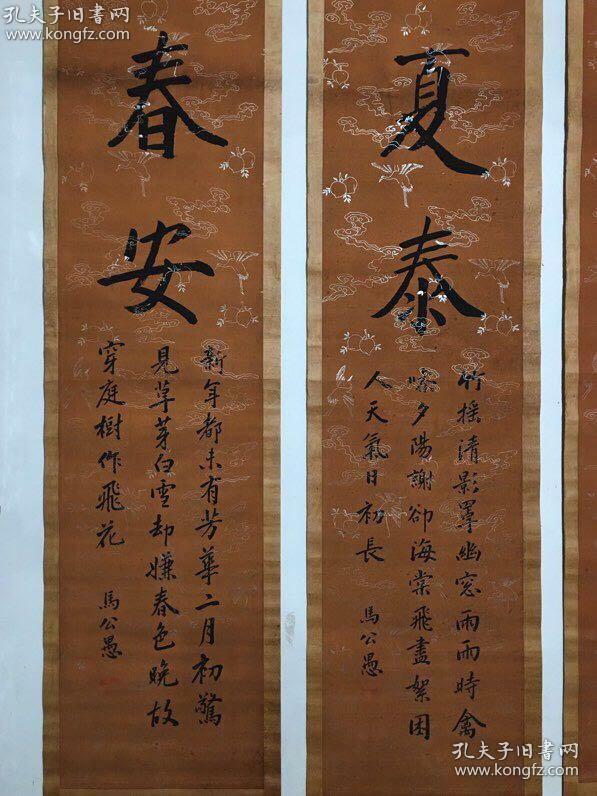 孔夫子旧书网
www.kongfz.com
孔夫子旧书网
www.kongfz.com
春安
新年都未有芳華二月初驚
見草芽白雪却嫌春色晚故
穿庭樹作飛花
馬公愚
夏泰
竹搖清影罩幽窓雨雨時禽
噪夕陽謝卻海棠飛盡絮困
人天氣日初長
馬公愚
孔夫子旧书网
www.kongfz.com